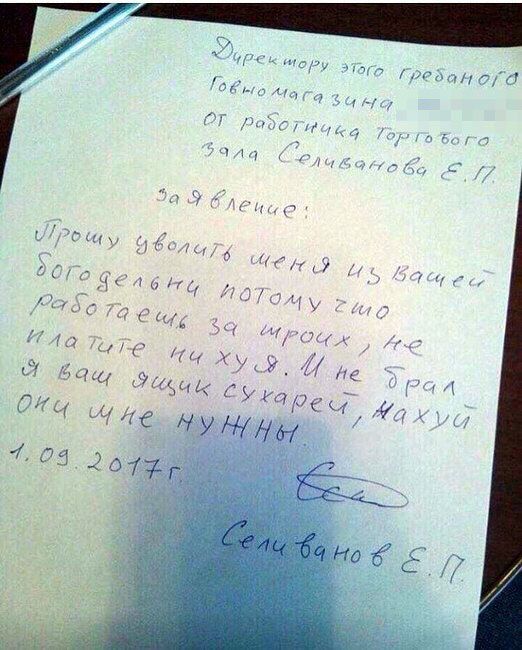 Директору этого гребаного
Говномагазина
от работника торгового
зала Селиванова Е.П.
заявление:
Прошу уволить меня из вашей
богодельни потому что
работаешь за троих, не
платите ни хуя. И не брал
я ваш ящик сухарей, нахуй
они мне нужны.
1.09.2017г.
Селиванов Е.П.